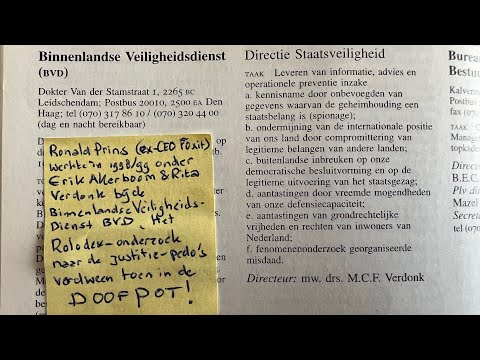 Binnenlandse Veiligheidsdienst
(BVD)
Dokter Van der Stamstraat 1, 2265 BC
Leidschendam; Postbus 20010, 2500 EA Den
Haag; tel (070) 317 86 10 / (070) 320 44 00
(dag en nacht bereikbaar)
Ronald Prins (ex-CEO Foxit)
werkte in 1998/99 onder
Erik Akerboom & Rita
Verdonk bij de
Binnenlandse Veiligheids-
Dienst BVD. Het
Rolodex-onderzoek
naar de justitie-pedo's
verdween toen in de
DOOFPOT!
Directie Staatsveiligheid
TAAK Leveren van informatie, advies en
operationele preventie inzake
a. kennisname door onbevoegden van
gegevens waarvan de geheimhouding een
staatsbelang is (spionage);
b. ondermijning van de internationale positie
van ons land door compromittering van
legitieme belangen van andere landen;
c. buitenlandse inbreuken op onze
democratische besluitvorming en op de
legitieme uitvoering van het staatsgezag;
d. aantastingen door vreemde mogendheden
van onze defensiecapaciteit;
e. aantastingen van grondrechtelijke
vrijheden en rechten van inwoners van
Nederland;
f. fenomeenonderzoek georganiseerde
misdaad.
Directeur: mw. drs. M.C.F. Verdonk
Burea
Bestu
Kalverm
Postbus
fax (0
TAAK
Manag
compu
B.E.C.
Plv dir
Mazel
Secreta
tel (0